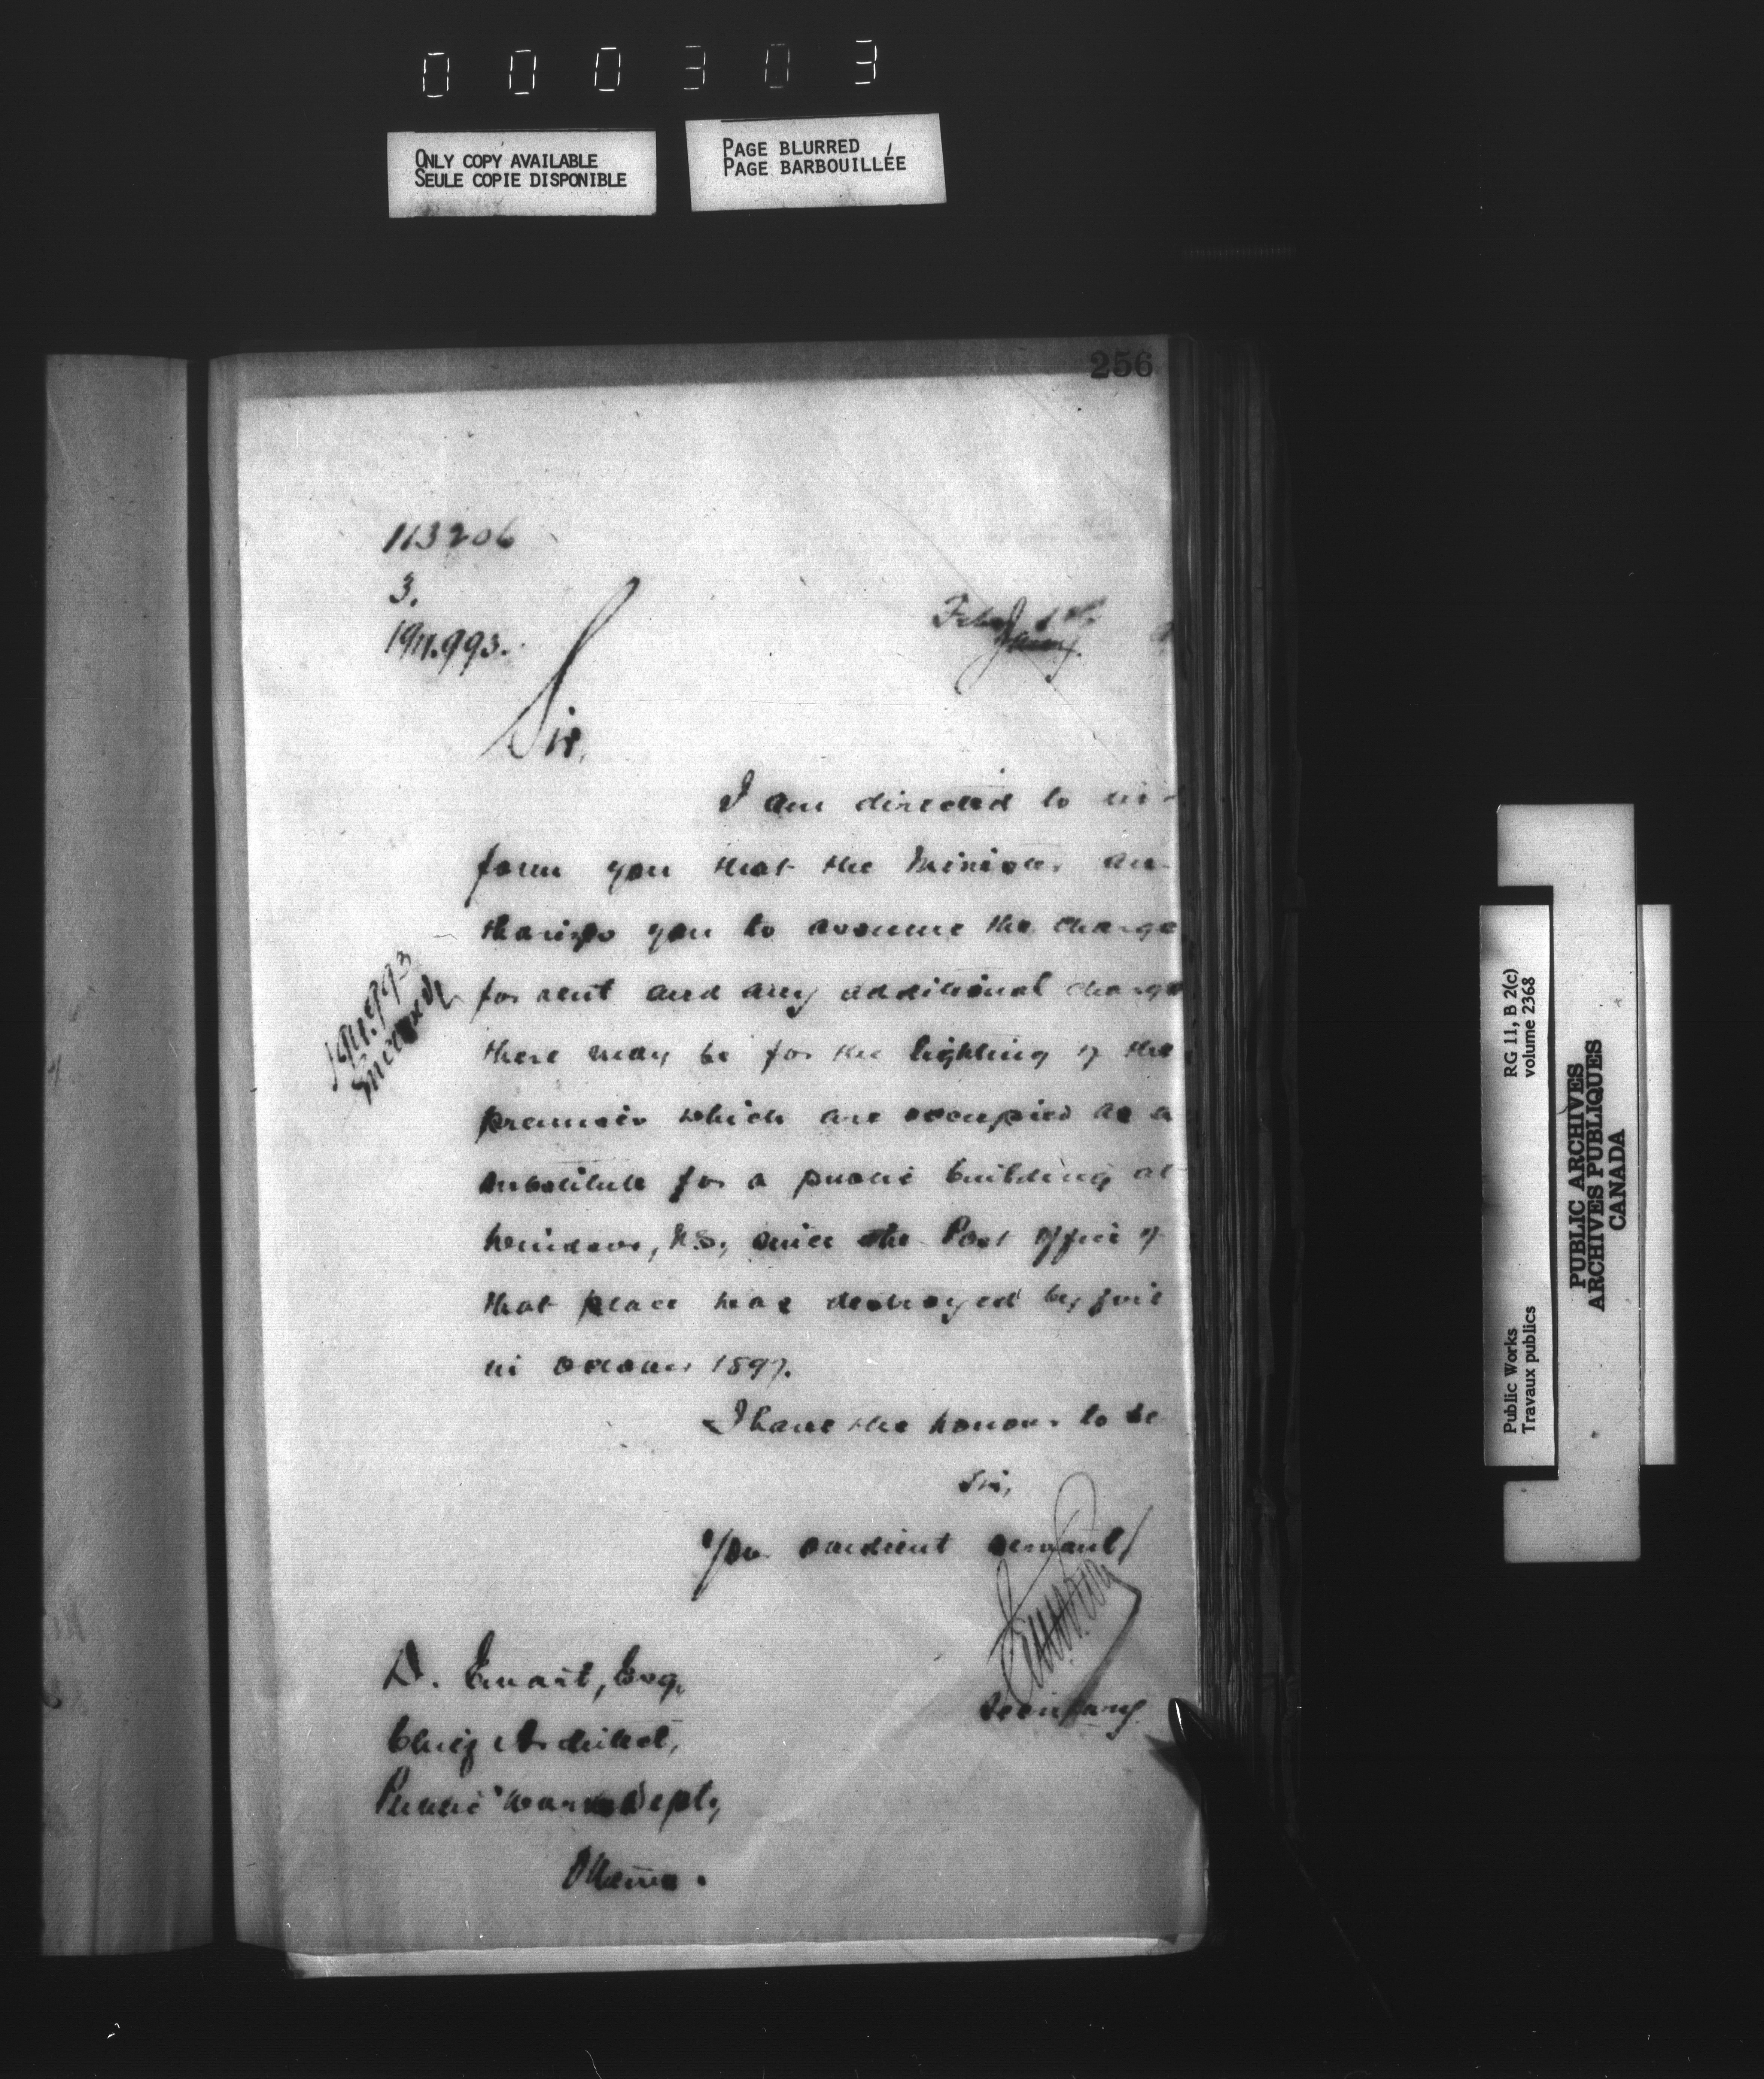 000303
ONLY COPY AVAILABLE
SEULE COPIE DISPONIBLE
PAGE BLURRED
PAGE BARBOUILLÉE
256
113206
3.
Feby 1st
Jany.
Sir,
I am directed to in-
form you that the Minister au-
thorizes you to assume the charge
for rent and any additional charge
there may be for the lighting of the
premises which are occupied as a
substitute for a public building at
Windsor, N.S., since the Post Office of
that place was destroyed by fire
in October 1897.
I have the honour to be
Sir,
Your obedient servant,
Secretary.
D. Ewart, Esq,
Chief Architect,
Public Works Dept,
Ottawa.
RG 11, B 2(c)
volume 2368
Public Works
Travaux publics
PUBLIC ARCHIVES
ARCHIVES PUBLIQUES
CANADA